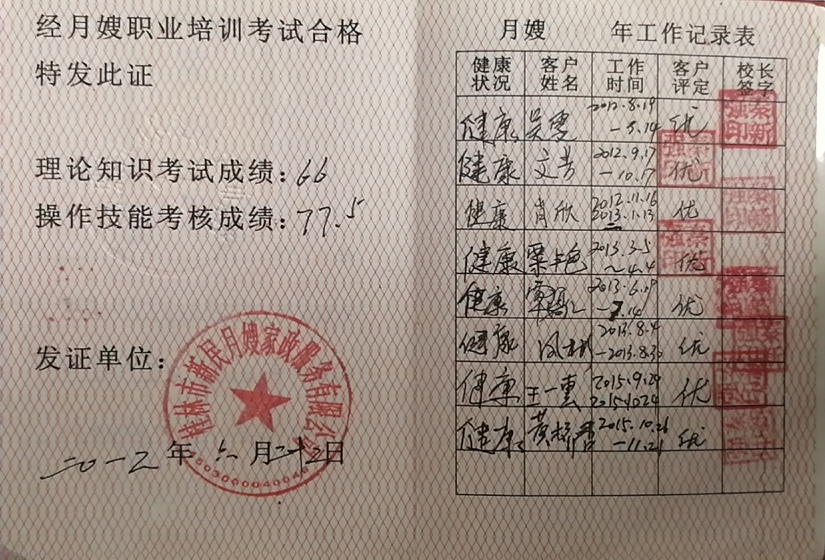 经月嫂职业培训考试合格
特发此证
理论知识考试成绩：66
操作技能考核成绩：77.5
发证单位：
桂林市新民月嫂家政服务有限公司
二〇一二年六月二十二日
月嫂 年工作记录表
健康状况 客户姓名 工作时间 客户评定 校长签字
健康 优
健康 2012.9.17-10.17 优
健康 肖欣 2012.11.16 2013.1.13 优
健康 2013.3-5~4.4 优
健康 优
健康 2013.8.4-2013.8.30 优
健康 王一 2015.9.24 2015.10.24 优
健康 黄 2015.10.26-11.21 优